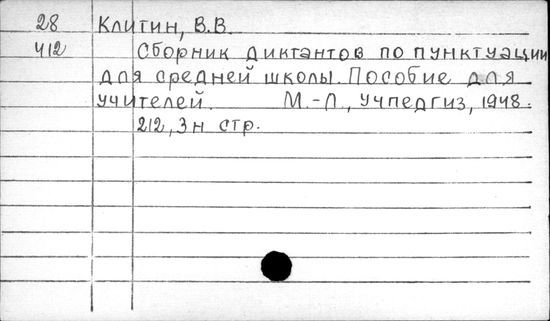 28 Клитин, В.В.
412 Сборник диктантов по пунктуации
для средней школы. Пособие для
учителей. М.-Л., Учпедгиз, 1948.
212, 3н стр.